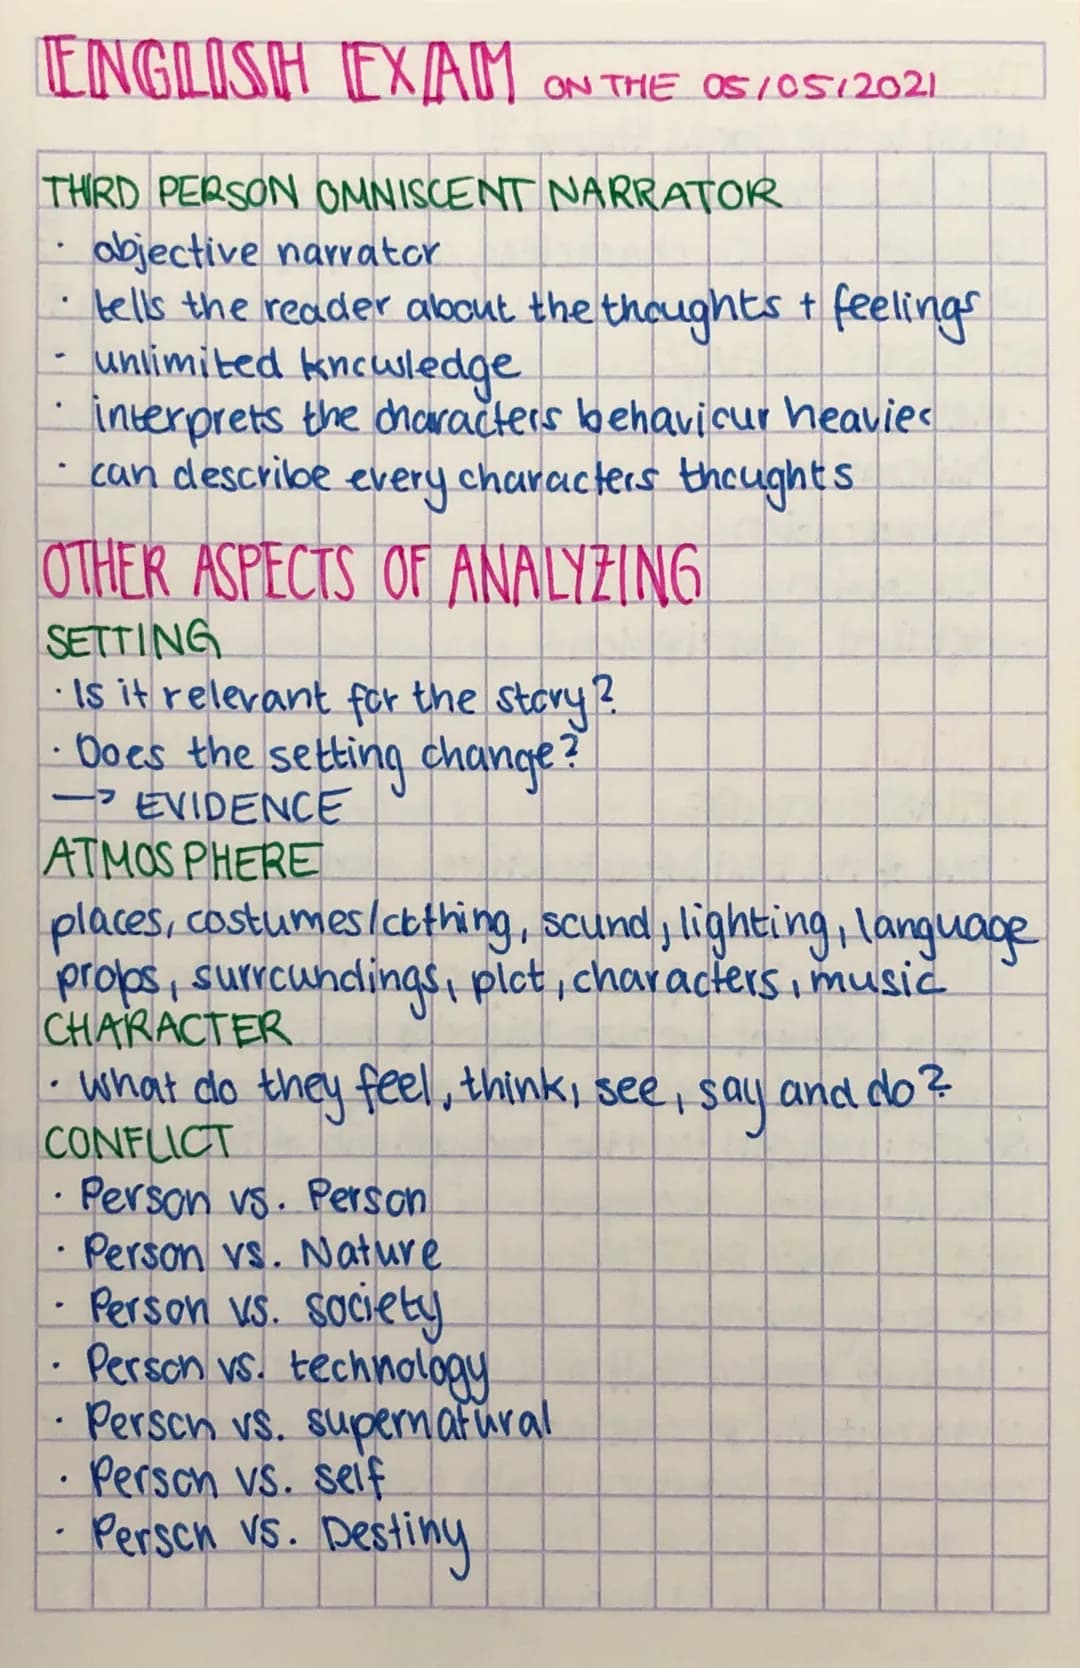 ENGLISH EXAM ON THE 05/05/2021
THIRD PERSON OMNISCENT NARRATOR
· objective narrator
· tells the reader about the thoughts + feelings
- unlimited knowledge
· interprets the characters behaviour heavier
· can describe every characters thoughts
OTHER ASPECTS OF ANALYZING
SETTING
· Is it relevant for the story?
· Does the setting change?
→ EVIDENCE
ATMOSPHERE
places, costumes/clothing, sound, lighting, language
props, surroundings, plot, characters, music
CHARACTER
· What do they feel, think, see, say and do?
CONFLICT
· Person vs. Person
· Person vs. Nature
· Person vs. society
· Person vs. technology
· Person vs. supernatural
· Person vs. self
· Person vs. Destiny